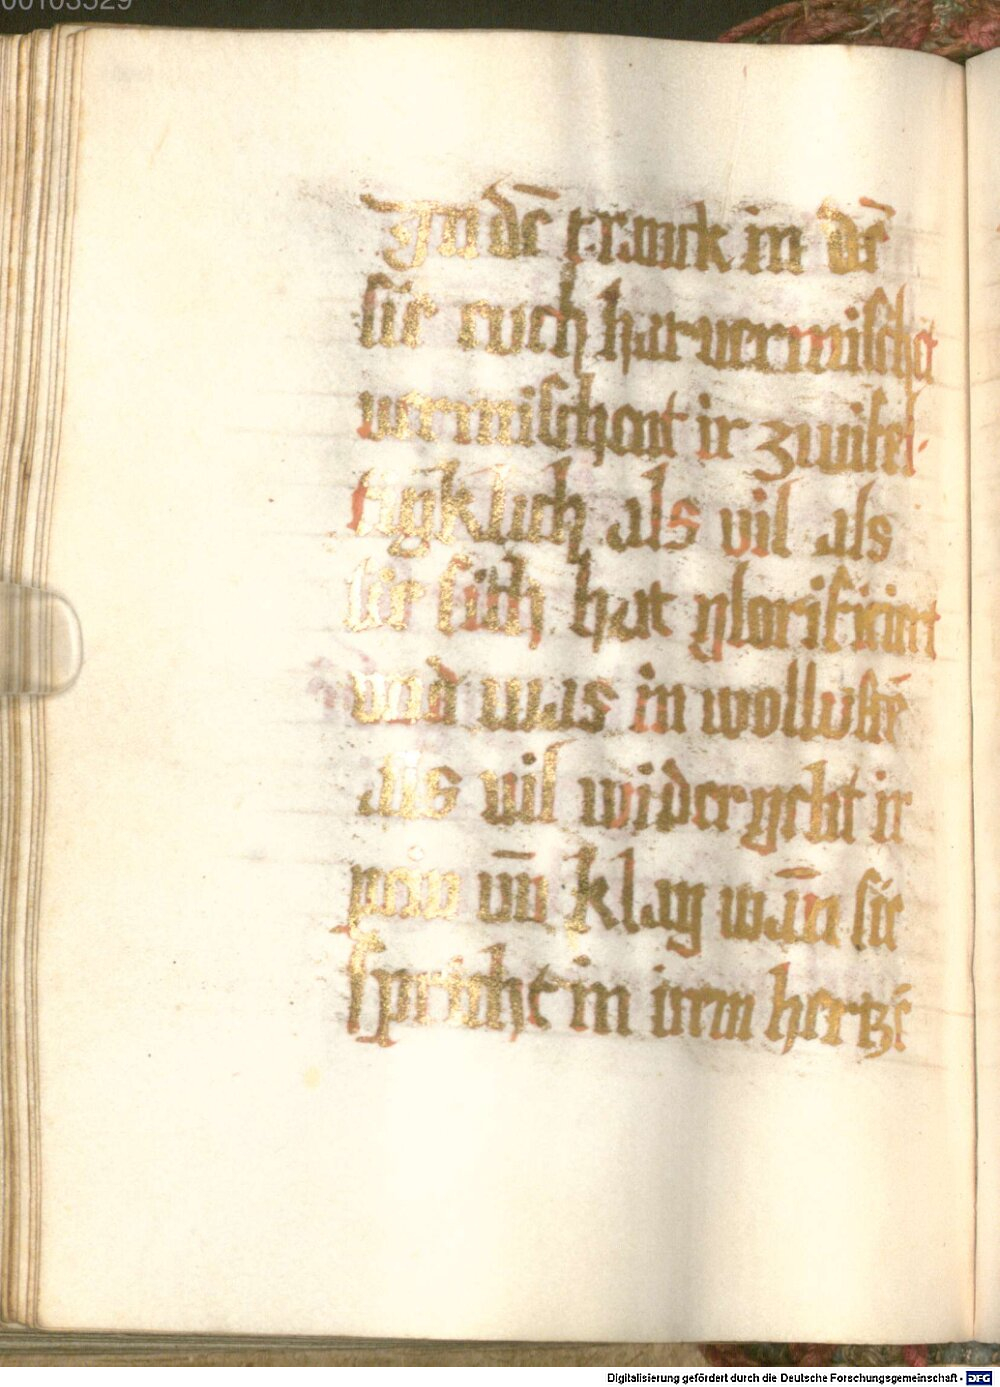 00103529
In dē tranck in dē
sie euch hat vermischet
vermischent ir zwifel
tigklich als vil als
sie sich hat glorificiert
vnd was in wollustē
als vil widergebt ir
pein vn̄ klag wān sie
spricht in irem hertzē
Digitalisierung gefördert durch die Deutsche Forschungsgemeinschaft - DFG